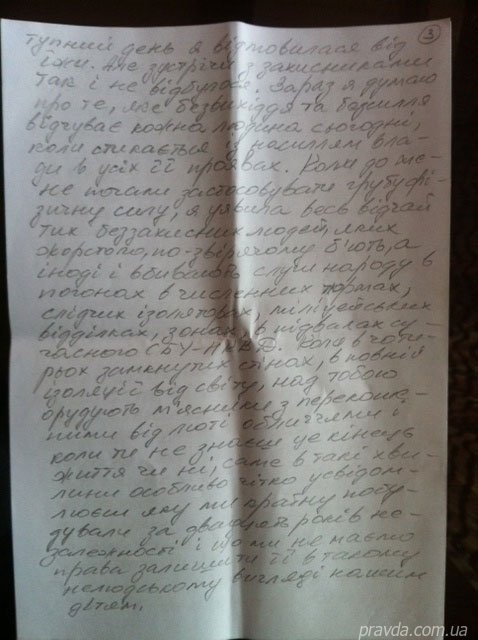 3
тупний день я відмовилася від
їжи. Але зустрічі з захисниками
так і не відбулося. Зараз я думаю
про те, яке безвихіддя та безсилля
відчуває кожна людина сьогодні,
коли стикається із насиллям вла-
ди в усіх її проявах. Коли до ме-
не почали застосовувати грубу фі-
зичну силу, я уявила весь відчай
тих беззахисних людей, яких
жорстоко, по-звірячому б'ють, а
іноді і вбивають слуги народу в
погонах в численних тюрмах,
слідчих ізоляторах, міліцейських
відділках, зонах, в підвалах су-
часного СБУ-НКВД. Коли в чоти-
рьох замкнутих стінах, в повній
ізоляції від світу, над тобою
орудують м'ясники з перекоше-
ними від люті обличчями і
коли ти не знаєш це кінець
життя чи ні, саме в такі хви-
лини особливо чітко усвідом-
люєш яку ми країну побу-
дували за двадцять років не-
залежності і що ми не маємо
права залишити її в такому
нелюдському вигляді нашим
дітям.
pravda.com.ua